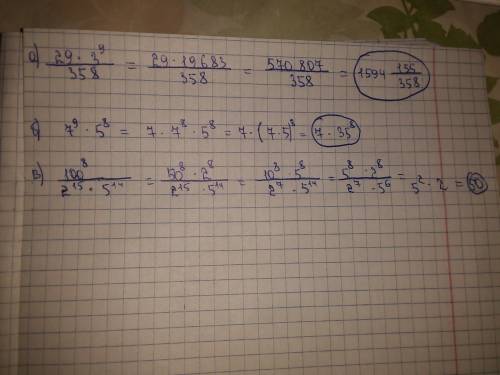 а) 29 · 3⁹ / 358 = 29 · 19683 / 358 = 570 807 / 358 = 1594 155/358
б) 7⁹ · 5⁸ = 7 · 7⁸ · 5⁸ = 7 · (7·5)⁸ = 7 · 35⁸
в) 100⁸ / 2¹⁵ · 5¹⁴ = 50⁸ · 2⁸ / 2¹⁵ · 5¹⁴ = 10⁸ · 5⁸ / 2⁷ · 5¹⁴ = 5⁸ · 2⁸ / 2⁷ · 5⁶ = 5² · 2 = 50